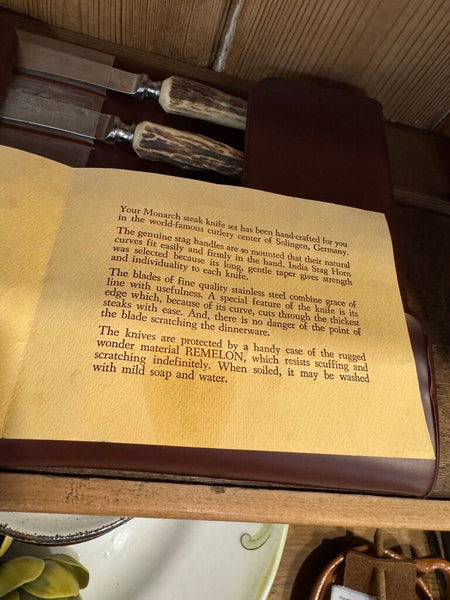 Your Monarch steak knife set has been hand-crafted for you
in the world-famous cutlery center of Solingen, Germany.
The genuine stag handles are so mounted that their natural
curves fit easily and firmly in the hand. India Stag Horn
was selected because its long, gentle taper gives strength
and individuality to each knife.
The blades of fine quality stainless steel combine grace of
line with usefulness. A special feature of the knife is its
edge which, because of its curve, cuts through the thickest
steaks with ease. And, there is no danger of the point of
the blade scratching the dinnerware.
The knives are protected by a handy case of the rugged
wonder material REMELON, which resists scuffing and
scratching indefinitely. When soiled, it may be washed
with mild soap and water.